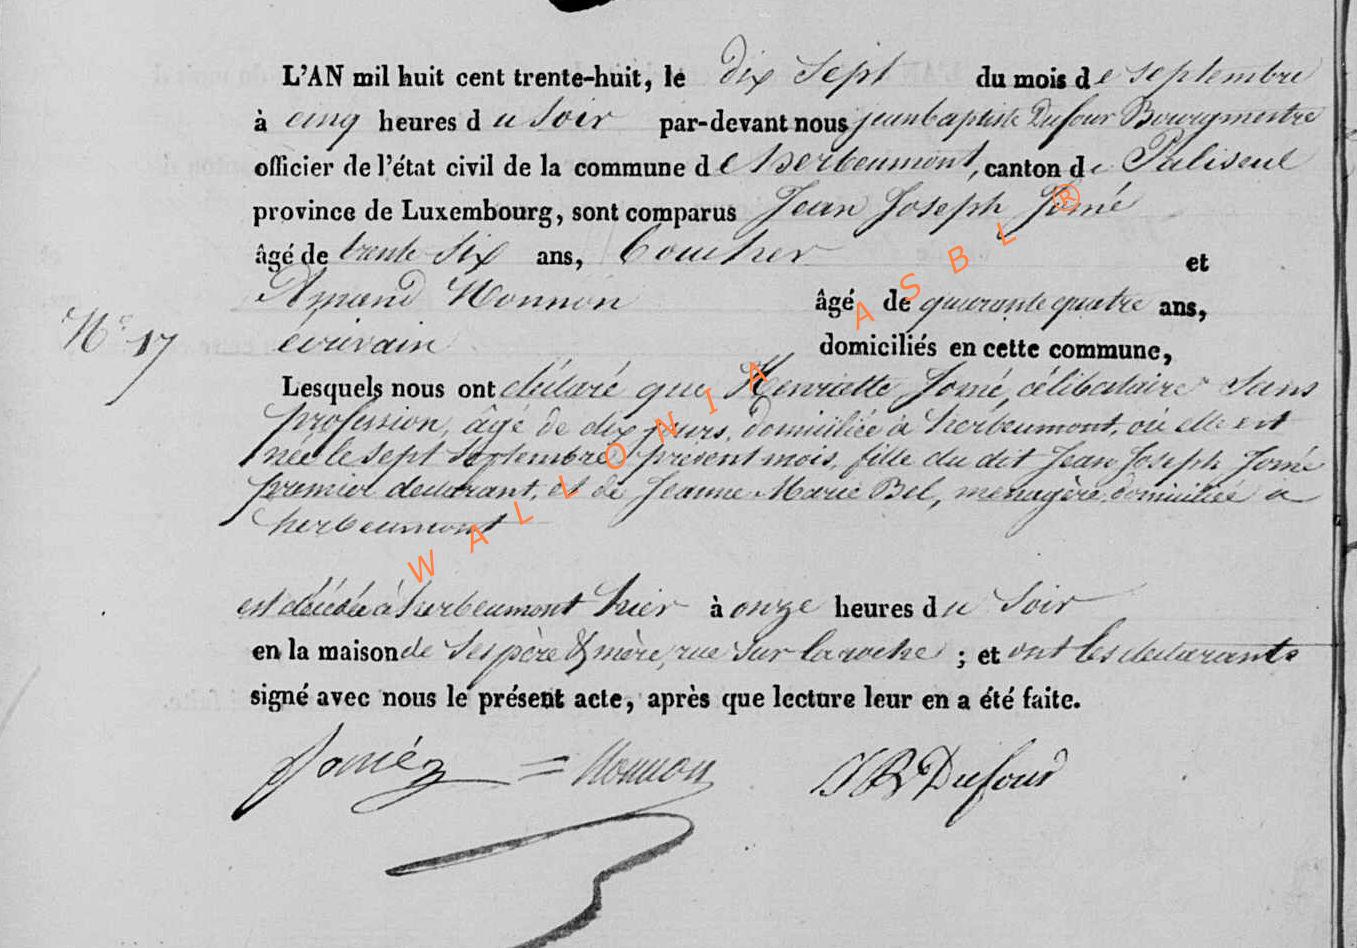 L'AN mil huit cent trente-huit, le dix Sept du mois de septembre
à cinq heures du Soir par-devant nous jeanbaptiste Dufour Bourgmestre
officier de l'état civil de la commune de herbeumont, canton de Paliseul
province de Luxembourg, sont comparus Jean Joseph Jomé
âgé de trente Six ans, et
Amand Monnon âgé de quarante quatre ans,
N° 17 écrivain domiciliés en cette commune,
Lesquels nous ont déclaré que Henriette Jomé, célibataire Sans
profession, âgé de dix jours, domiciliée à herbeumont, où elle est
née le Sept Septembre présent mois, fille du dit Jean Joseph Jomé
premier déclarant, et de Jeanne Marie Bel, menagère, domiciliée à
herbeumont
est décédée à herbeumont hier à onze heures du Soir
en la maison de Ses père & mère, rue Sur la roche ; et ont les declarants
signé avec nous le présent acte, après que lecture leur en a été faite.
Monnon JB Dufour
WALLONIA ASBL ®